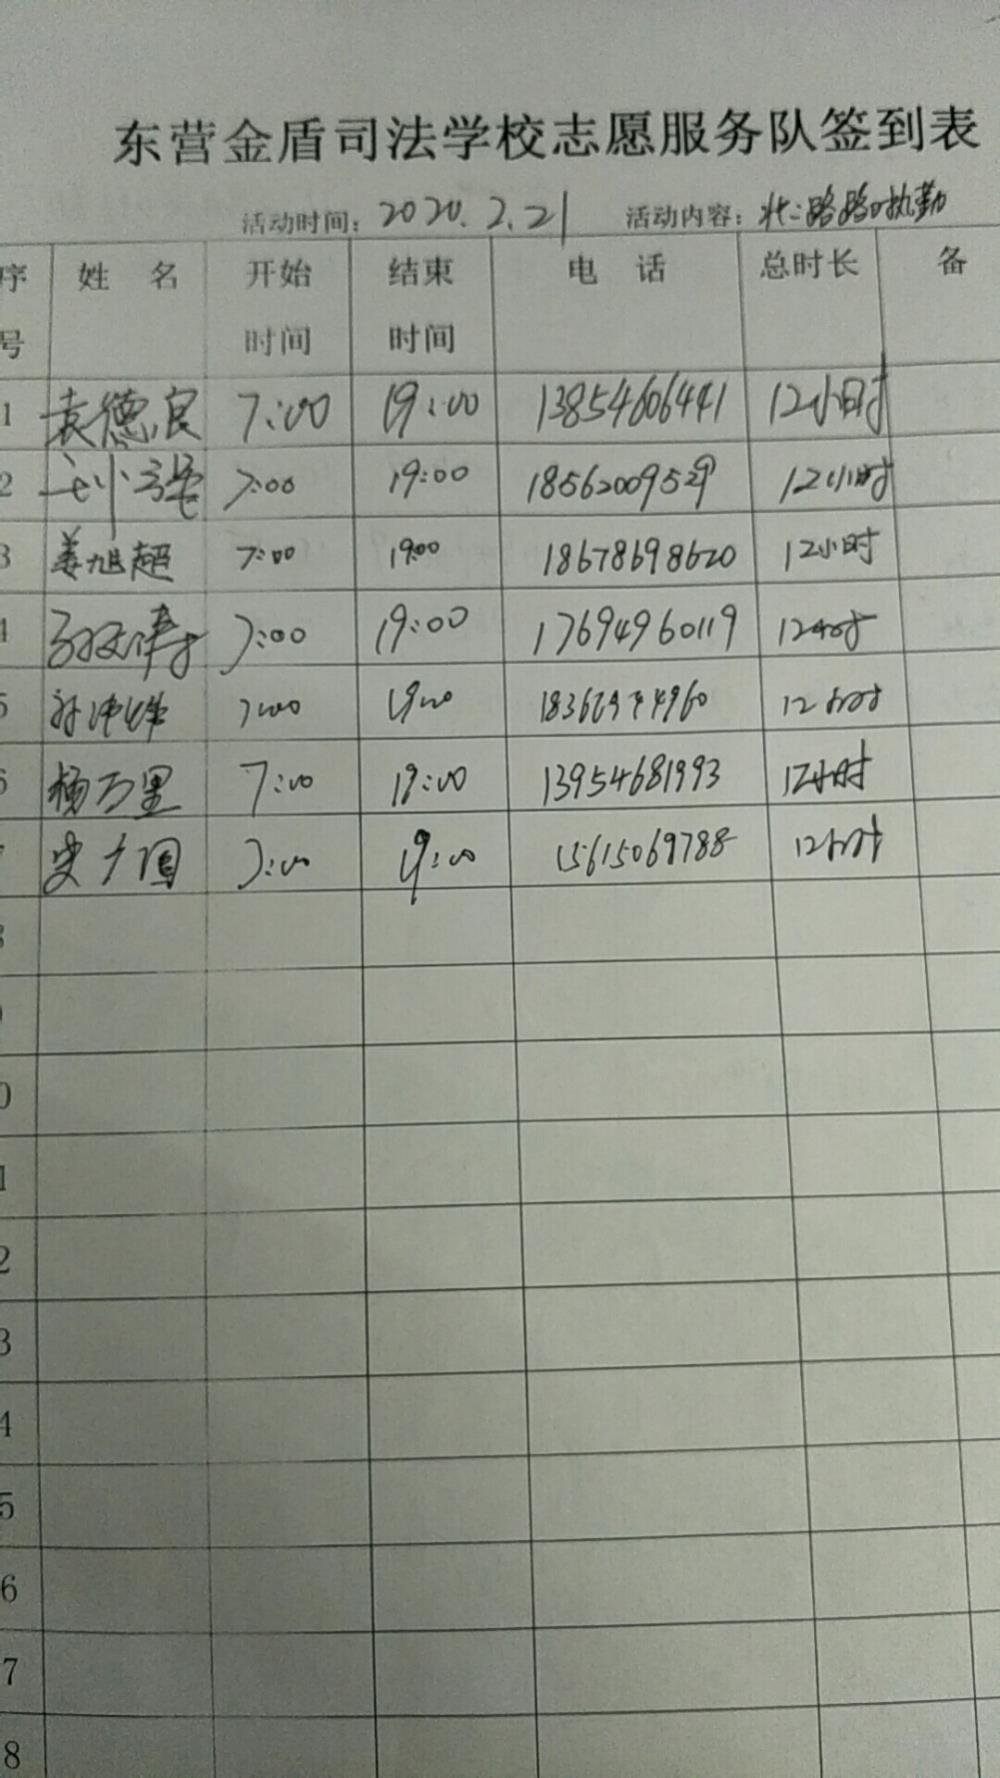 东营金盾司法学校志愿服务队签到表
活动时间：2020.2.21 活动内容：北二路路口执勤
序号 姓名 开始时间 结束时间 电话 总时长 备
1 袁德良 7:00 19:00 13854606441 12小时
2 刘小强 7:00 19:00 1856200952 12小时
3 姜旭超 7:00 19:00 18678698620 12小时
4 7:00 19:00 17694960119 12小时
5 7:00 19:00 12小时
6 杨万里 7:00 19:00 13954681993 12小时
7 7:00 19:00 15615069788 12小时
8
9
0
1
2
3
4
5
6
7
8